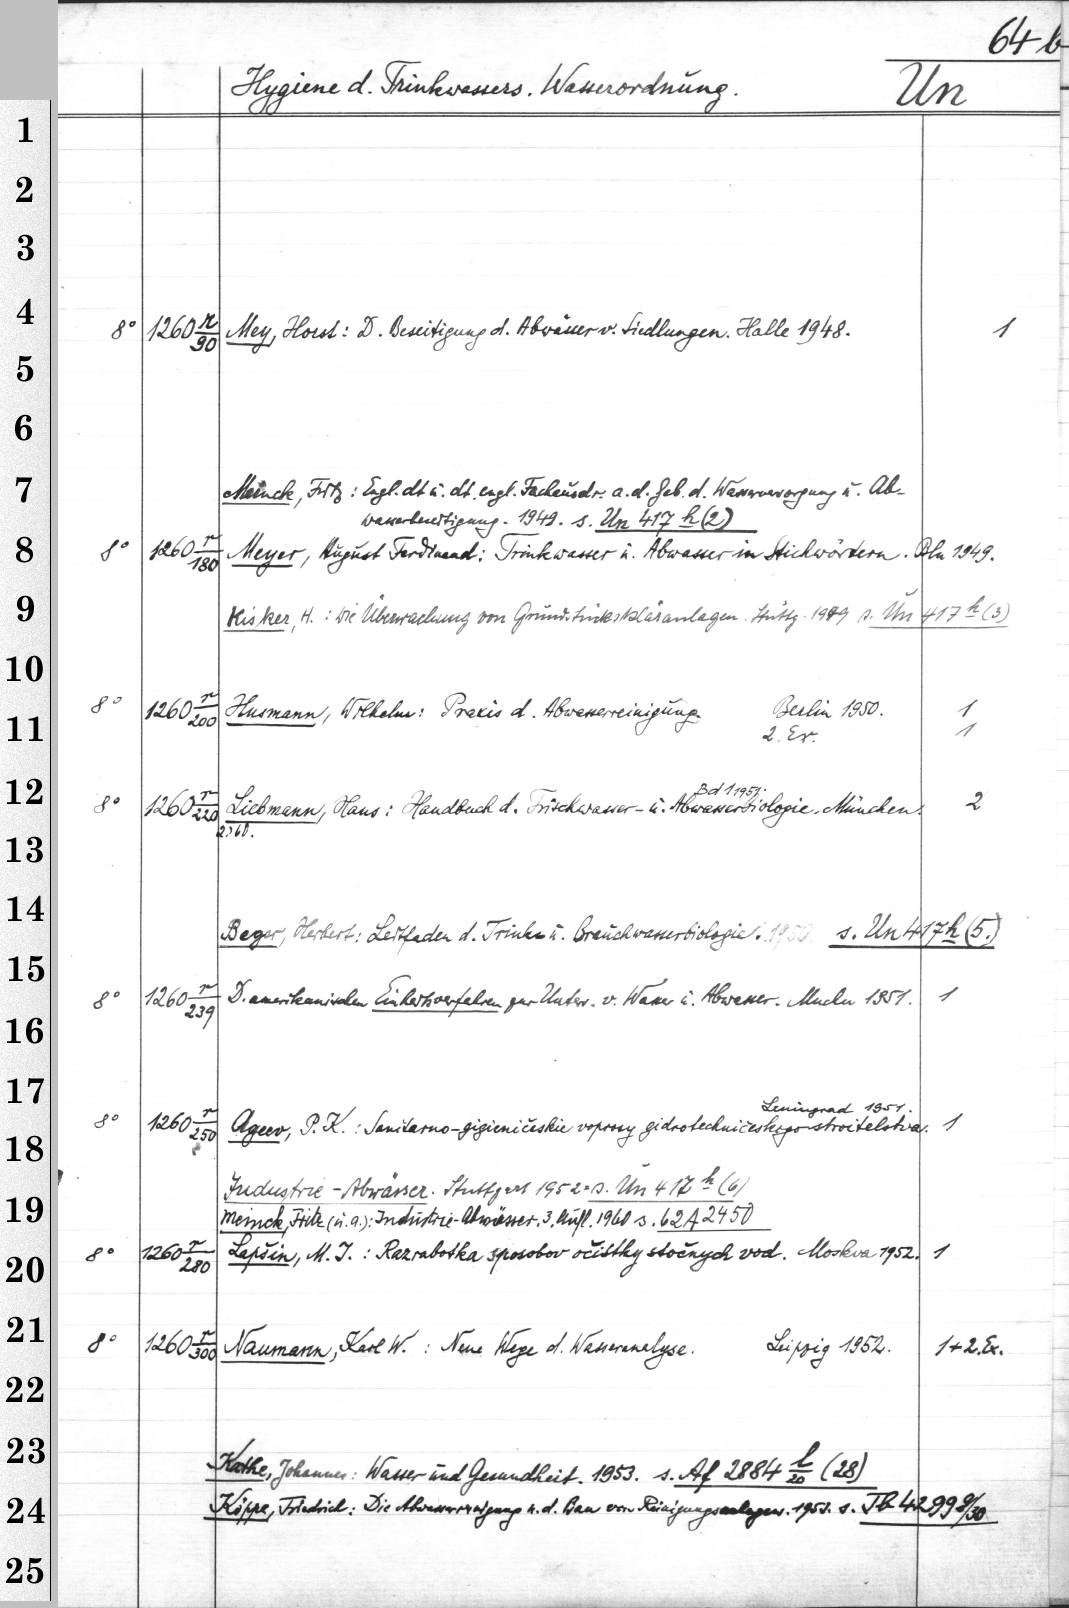 64 b
Hygiene d. Trinkwassers. Wasserordnung. Un
1
2
3
4
8° 1260 r/90 Mey, Horst: D. Beseitigung d. Abwässer v. Siedlungen. Halle 1948. 1
5
6
7
Meinck, Fritz: Engl. dt. u. dt. engl. Fachausdr. a. d. Geb. d. Wasserversorgung u. Ab-
wasserbeseitigung. 1949. s. Un 417 h (2)
8
8° 1260 r/180 Meyer, August Ferdinand: Trinkwasser u. Abwasser in Stichwörtern. Bln 1949.
9
Kisker, H.: Die Überwachung von Grundstückskläranlagen. Stuttg. 1949 s. Un 417 h (3)
10
8° 1260 r/200 Husmann, Wilhelm: Praxis d. Abwasserreinigung. Berlin 1950. 1
11
2. Ex. 1
12
Bd 1 1951.
8° 1260 r/220 Liebmann, Hans: Handbuch d. Frischwasser- u. Abwasserbiologie. München. 2
13
14
Beger, Herbert: Leitfaden d. Trink- u. Brauchwasserbiologie. 1950 s. Un 417 h (5.)
15
8° 1260 r/239 D. amerikanischen Einheitsverfahren zur Unters. v. Wasser u. Abwasser. Mchn 1951. 1
16
17
Leningrad 1951.
8° 1260 r/250 Ageev, P. K.: Sanitarno-gigieničeskie voprosy gidrotechničeskogo stroitelstva. 1
18
Industrie-Abwässer. Stuttgart 1952. s. Un 417 h (6)
19
Meinck, Fritz (u. a.): Industrie-Abwässer. 3. Aufl. 1960 s. 62 A 2450
8° 1260 r/280 Lapšin, M. I.: Razrabotka sposobov očistky stočnych vod. Moskva 1952. 1
20
21
8° 1260 r/300 Naumann, Karl W.: Neue Wege d. Wasseranalyse. Leipzig 1952. 1+2. Ex.
22
23
Kathe, Johannes: Wasser und Gesundheit. 1953. s. Af 2884 l/20 (28)
24
Köppe, Friedrich: Die Abwasserreinigung u. d. Bau von Reinigungsanlagen. 1953. s. Tb 4299 g/30
25